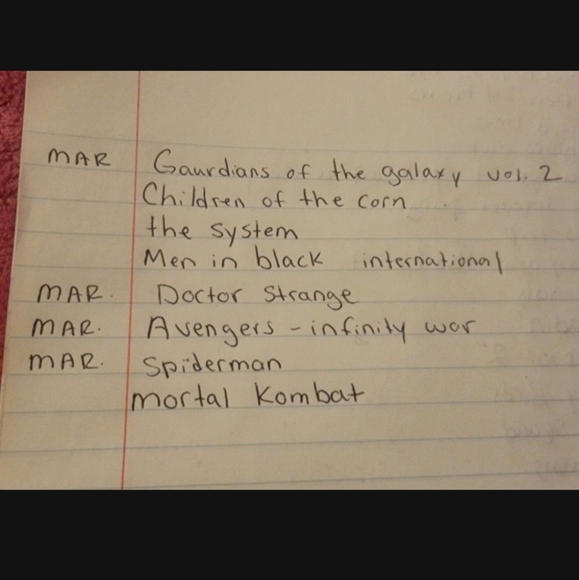 MAR Gaurdians of the galaxy vol. 2
Children of the corn
the system
Men in black international
MAR. Doctor Strange
MAR. Avengers - infinity war
MAR. Spiderman
mortal Kombat